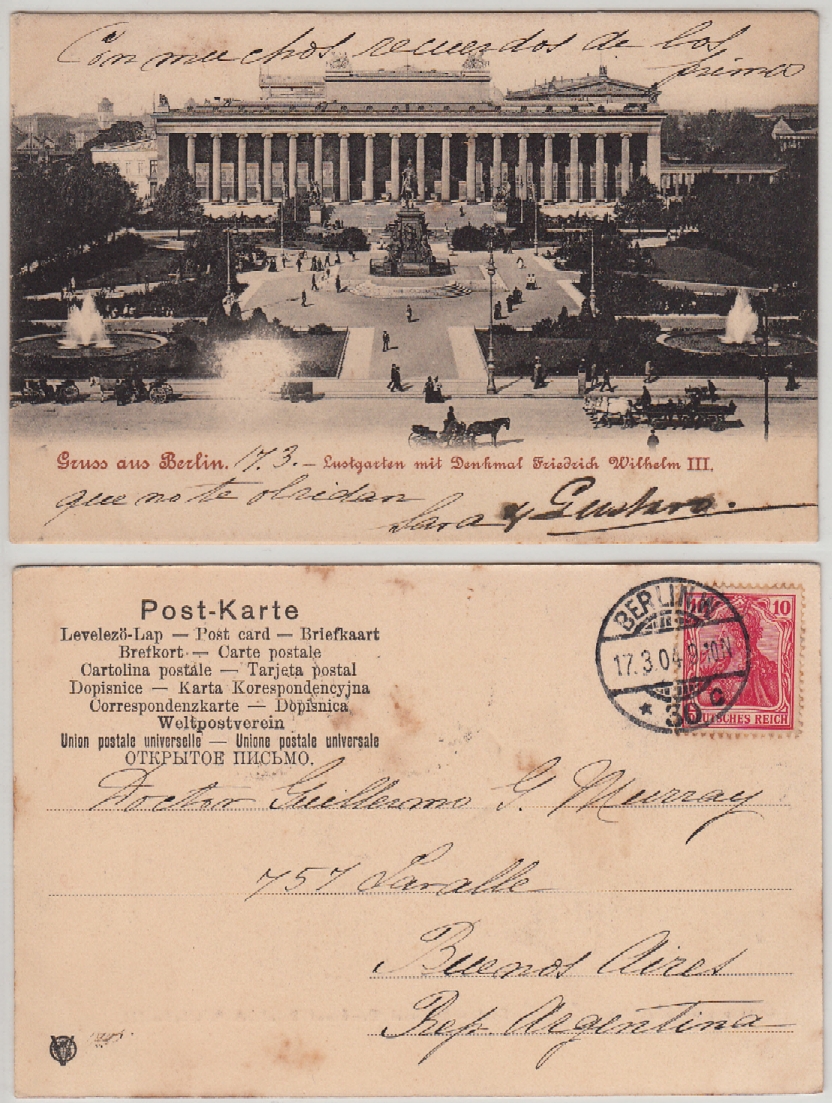 Con muchos recuerdos de los
primos
Gruss aus Berlin. 17.3. – Lustgarten mit Denkmal Friedrich Wilhelm III.
que no te olvidan
Sara y Gustavo.
Post-Karte
Levelezö-Lap — Post card — Briefkaart
Brefkort — Carte postale
Cartolina postale — Tarjeta postal
Dopisnice — Karta Korespondencyjna
Correspondenzkarte — Dopisnica
Weltpostverein
Union postale universelle — Unione postale universale
ОТКРЫТОЕ ПИСЬМО.
BERLIN.W
17.3.04
* 30 c.
10
DEUTSCHES REICH
Doctor Guillermo G. Murray
757 Lavalle
Buenos Aires
Rep. Argentina